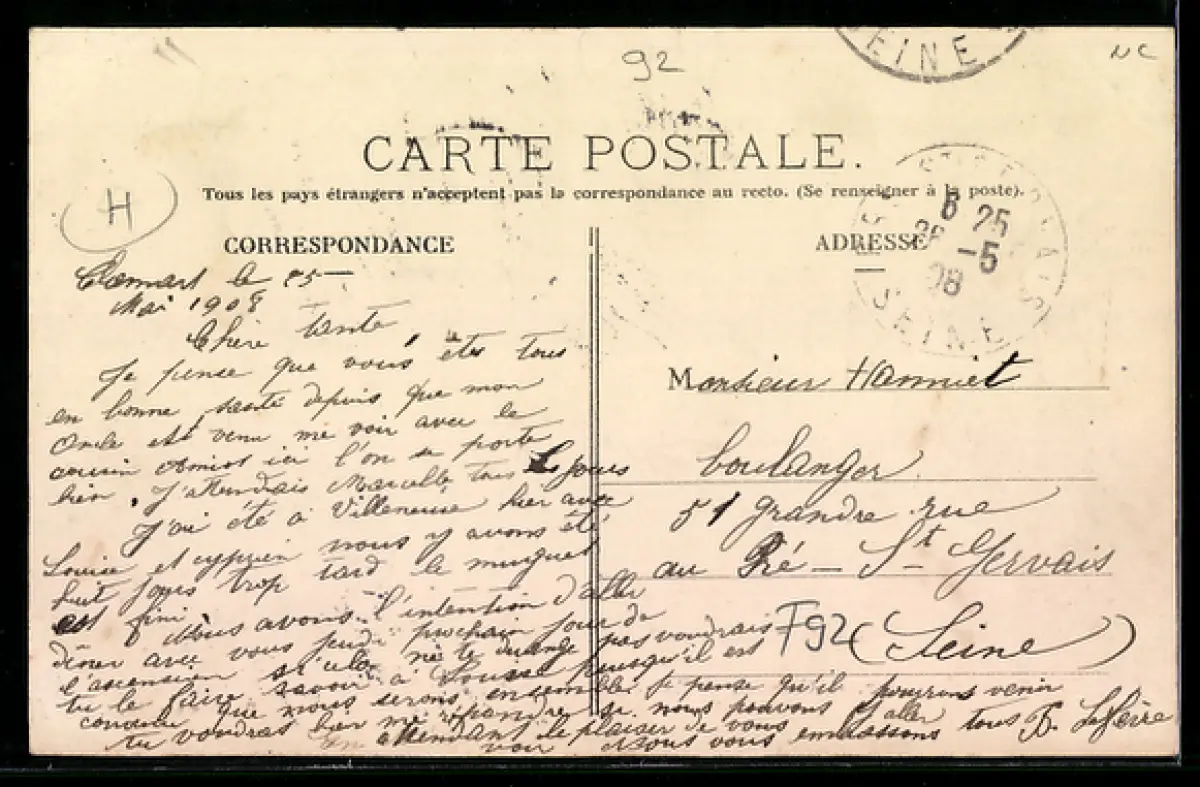 SEINE
92
NC
CARTE POSTALE.
Tous les pays étrangers n'acceptent pas la correspondance au recto. (Se renseigner à la poste).
H
CORRESPONDANCE
Clamart le 25
Mai 1908
Chère tante
Je pense que vous êtes tous
en bonne santé depuis que mon
Oncle est venu me voir avec le
cousin ici l'on se porte
bien, J'attendais Marcelle tous les jours
J'ai été à Villeneuve hier avec
Louise et cyprien nous y avons été
huit jours trop tard le muguet
est fini
Nous avons l'intention d'aller
dîner avec vous jeudi prochain jour de
l'ascension si cela ne te dérange pas voudrais
tu le faire savoir à Louise puisqu'il est
convenu que nous serons ensemble. Je pense qu'il pourrons venir
tu voudras bien me répondre si nous pouvons y aller
en attendant le plaisir de vous
voir Nous vous embrassons tous
ADRESSE
6 25
-5
08
SEINE
Monsieur Hanniet
boulanger
51 grandre rue
au Pré - St Gervais
F92
(Seine)